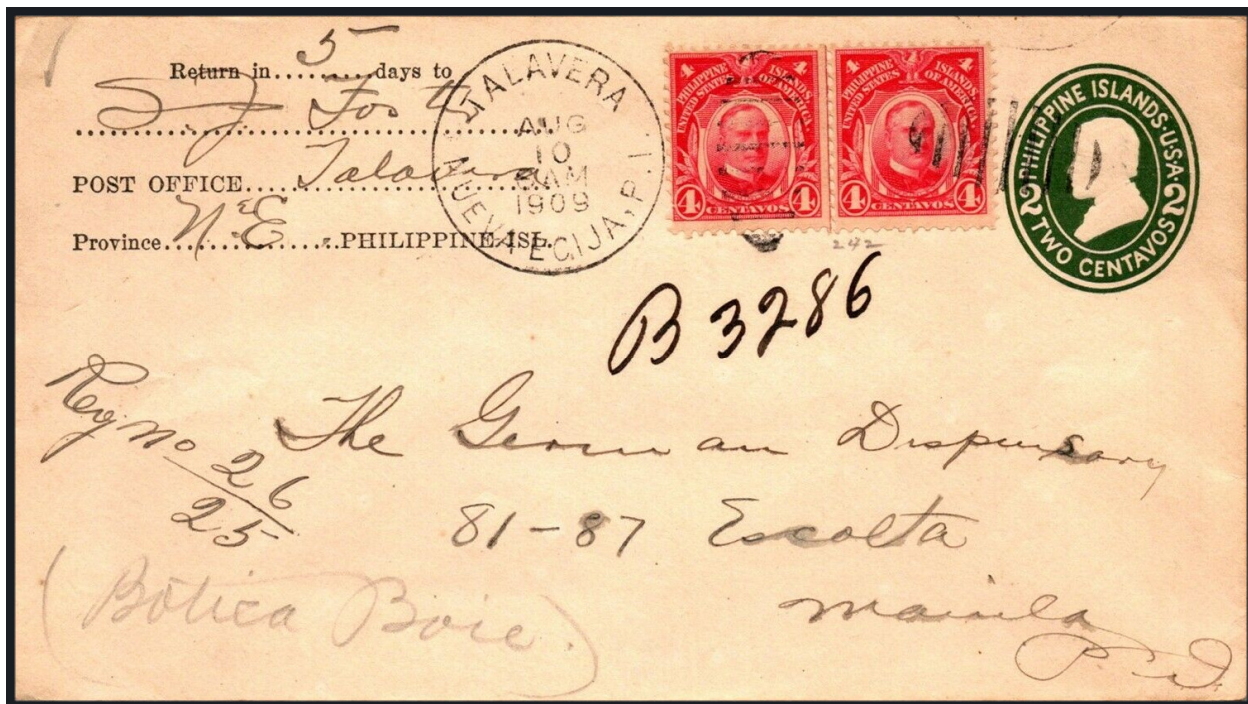 Return in 5 days to
S. J. Fost
POST OFFICE Talavera
Province N.E. PHILIPPINE ISL.
TALAVERA
AUG
10
AM
1909
NUEVA ECIJA, P.I.
4 PHILIPPINE ISLANDS 4
UNITED STATES OF AMERICA
4 CENTAVOS 4
4 PHILIPPINE ISLANDS 4
UNITED STATES OF AMERICA
4 CENTAVOS 4
PHILIPPINE ISLANDS·U·S·A·
2 TWO CENTAVOS 2
242
B 3286
Reg. No 26
25
The German Dispensary
81-87 Escolta
Manila
P. I.
(Botica Boie)